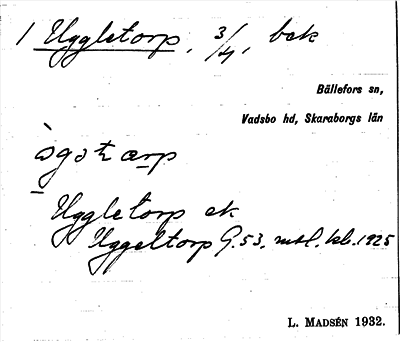 1 Uggletorp, 3/4, bck
Bällefors sn,
Vadsbo hd, Skaraborgs län
Uggletorp ek
Uggeltorp G. 53, mtl, kb. 1925
L. MADSÉN 1932.